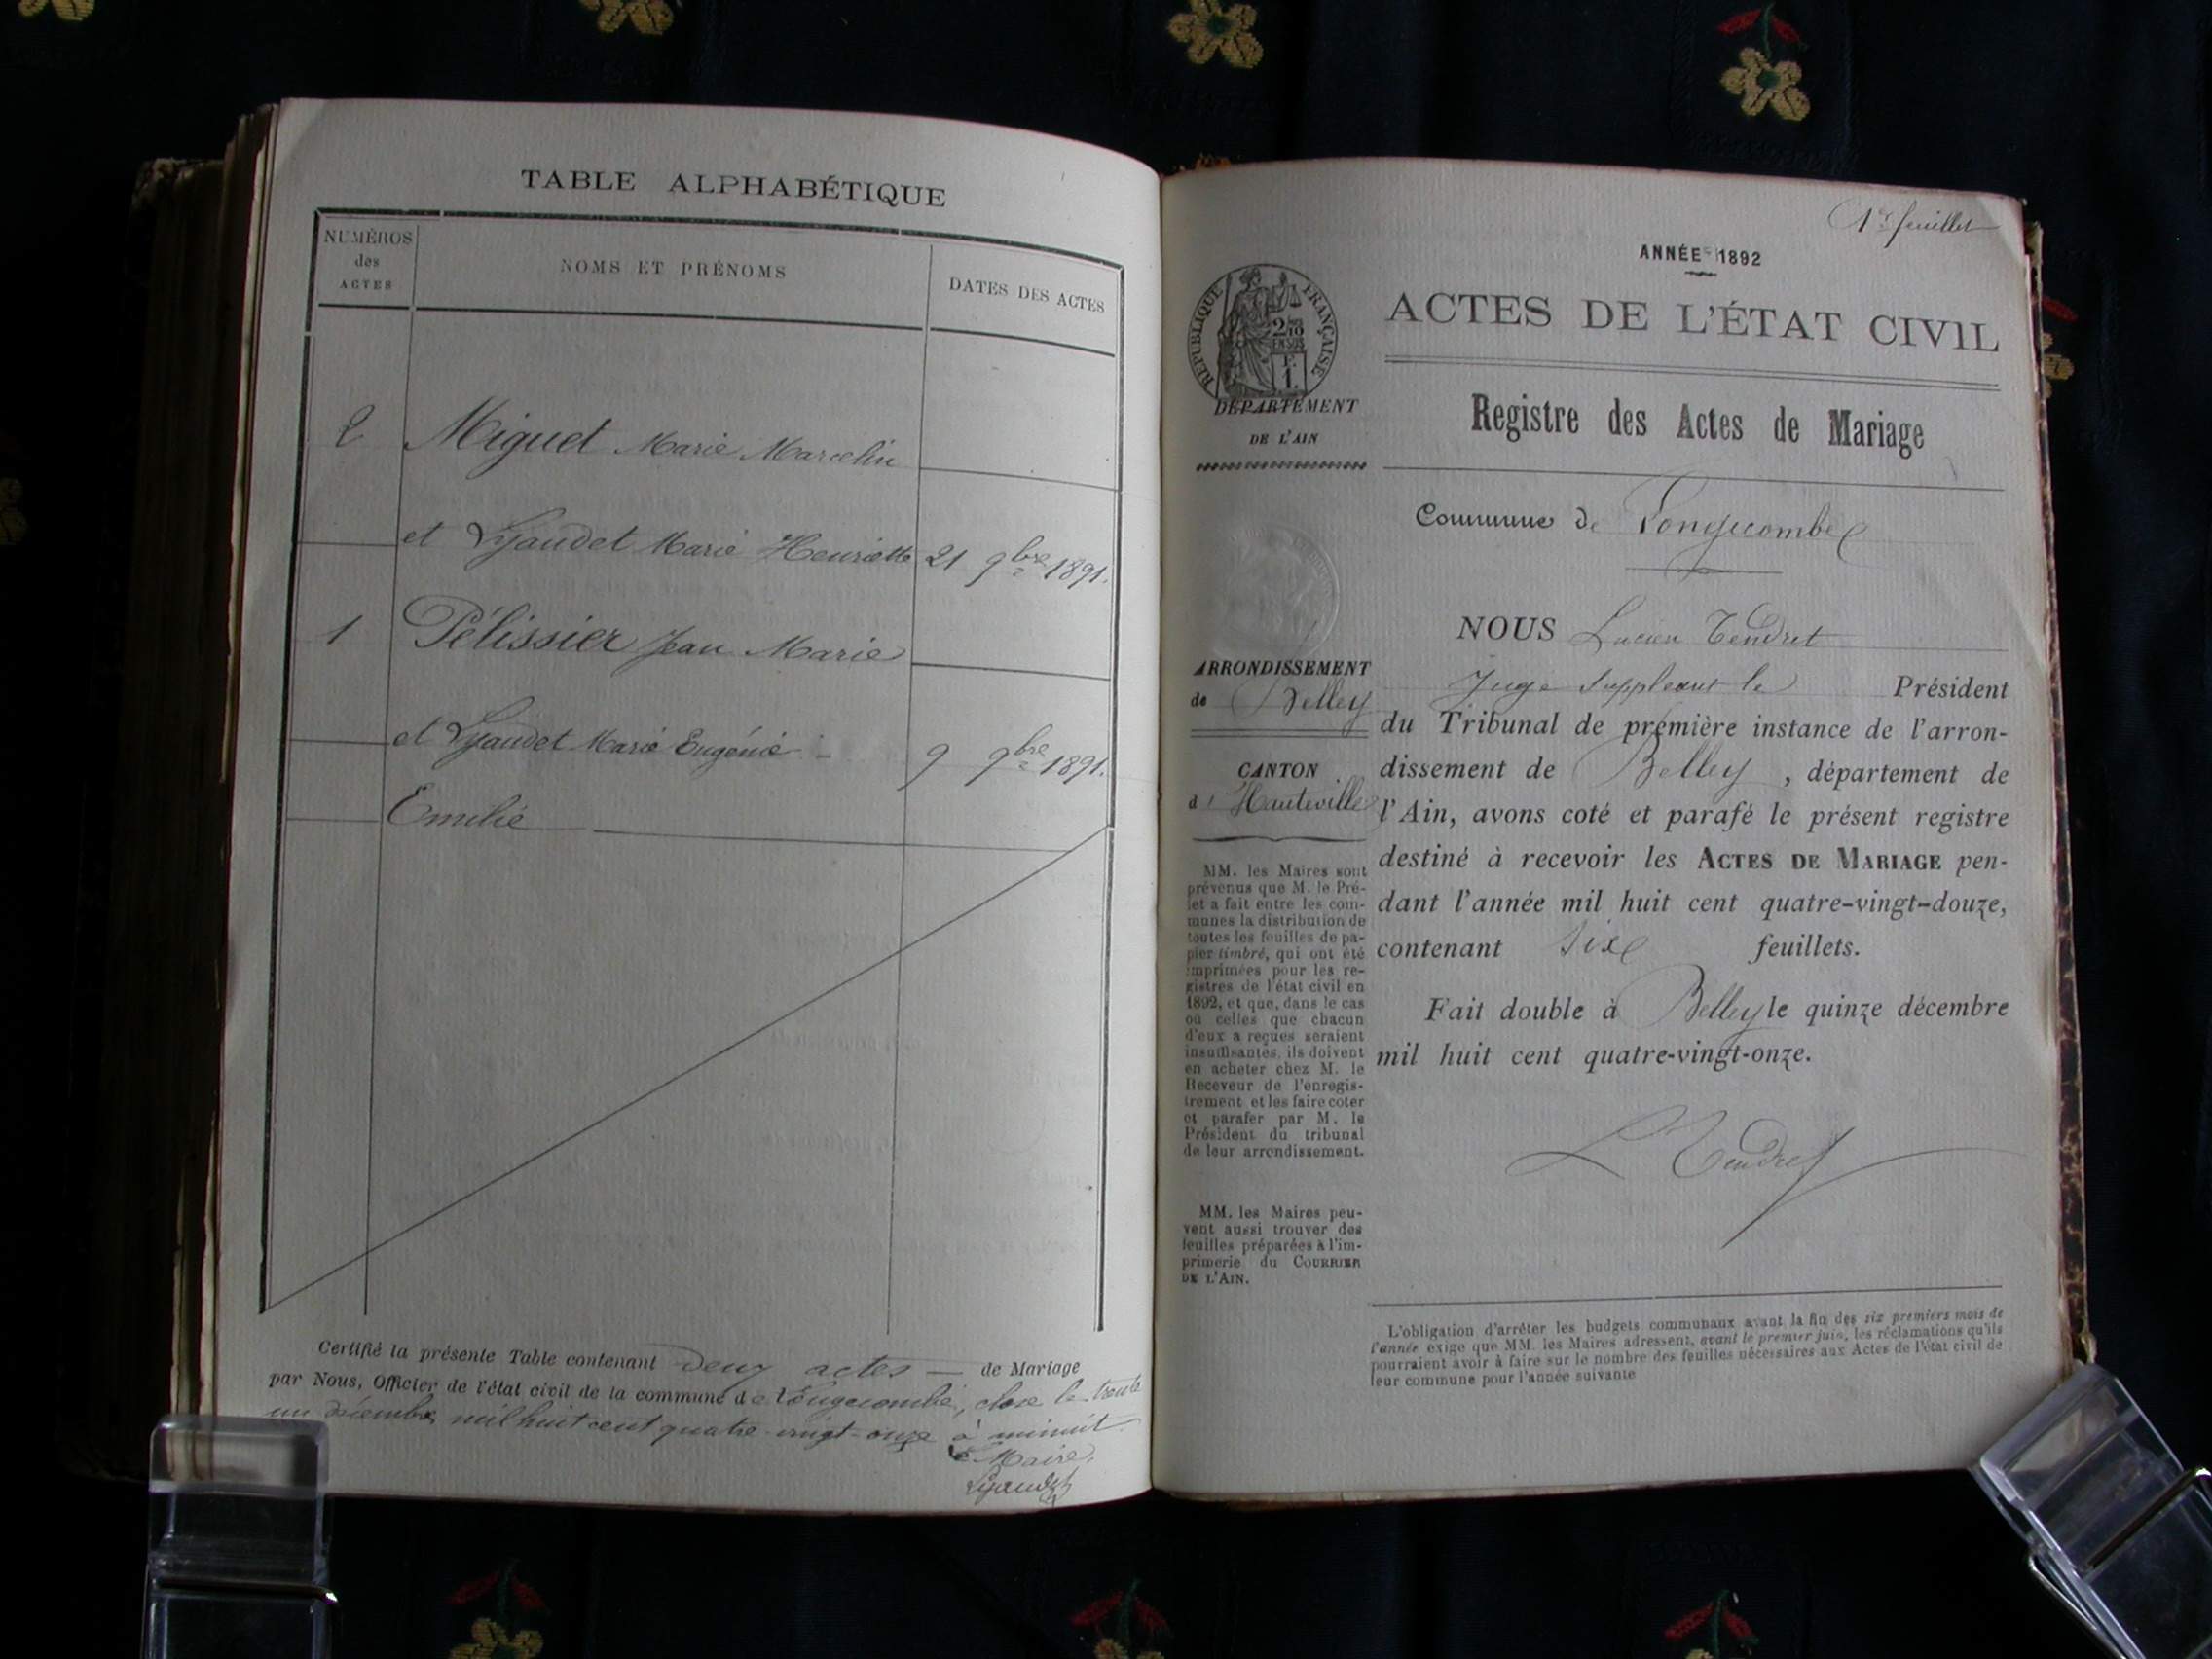 TABLE ALPHABÉTIQUE
NUMÉROS
des
ACTES
NOMS ET PRÉNOMS
DATES DES ACTES
2 Miguet Marie Marcelin
et Lyaudet Marie Henriette 21 9bre 1891.
1 Pélissier Jean Marie
et Lyaudet Marie Eugénie 9 9bre 1891.
Emilie
Certifié la présente Table contenant deux actes de Mariage
par Nous, Officier de l'état civil de la commune de Longecombe, close le trente
un décembre mil huit cent quatre-vingt-onze à minuit.
Le Maire,
Lyaudet
1er feuillet
ANNÉE 1892
RÉPUBLIQUE FRANÇAISE
2/10
EN SUS
F.
1.
ACTES DE L'ÉTAT CIVIL
Registre des Actes de Mariage
DÉPARTEMENT
DE L'AIN
Commune de Longecombe
NOUS Lucien Tendret
Juge Suppléant le Président
du Tribunal de première instance de l'arron-
dissement de Belley, département de
l'Ain, avons coté et parafé le présent registre
destiné à recevoir les ACTES DE MARIAGE pen-
dant l'année mil huit cent quatre-vingt-douze,
contenant six feuillets.
Fait double à Belley le quinze décembre
mil huit cent quatre-vingt-onze.
L Tendret
ARRONDISSEMENT
de Belley
CANTON
d'Hauteville
MM. les Maires sont
prévenus que M. le Pré-
fet a fait entre les com-
munes la distribution de
toutes les feuilles de pa-
pier timbré, qui ont été
imprimées pour les re-
gistres de l'état civil en
1892, et que, dans le cas
où celles que chacun
d'eux a reçues seraient
insuffisantes, ils doivent
en acheter chez M. le
Receveur de l'enregis-
trement et les faire coter
et parafer par M. le
Président du tribunal
de leur arrondissement.
MM. les Maires peu-
vent aussi trouver des
feuilles préparées à l'im-
primerie du COURRIER
DE L'AIN.
L'obligation d'arrêter les budgets communaux avant la fin des six premiers mois de
l'année exige que MM. les Maires adressent, avant le premier juin, les réclamations qu'ils
pourraient avoir à faire sur le nombre des feuilles nécessaires aux Actes de l'état civil de
leur commune pour l'année suivante